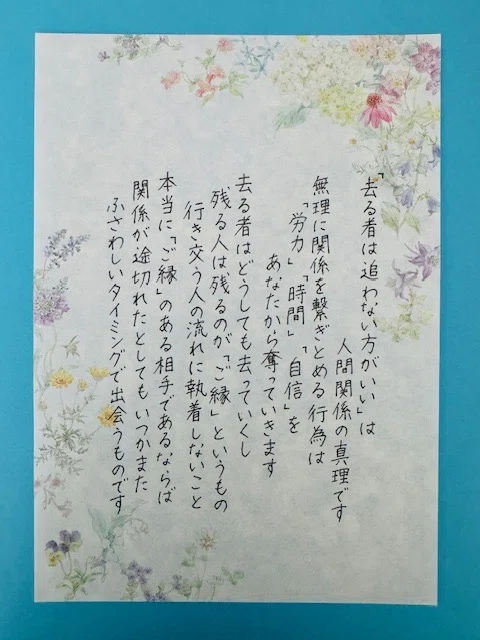 「去る者は追わない方がいい」は
人間関係の真理です
無理に関係を繋ぎとめる行為は
「労力」「時間」「自信」を
あなたから奪っていきます
去る者はどうしても去っていくし
残る人は残るのが「ご縁」というもの
行き交う人の流れに執着しないこと
本当に「ご縁」のある相手であるならば
関係が途切れたとしてもいつかまた
ふさわしいタイミングで出会うものです